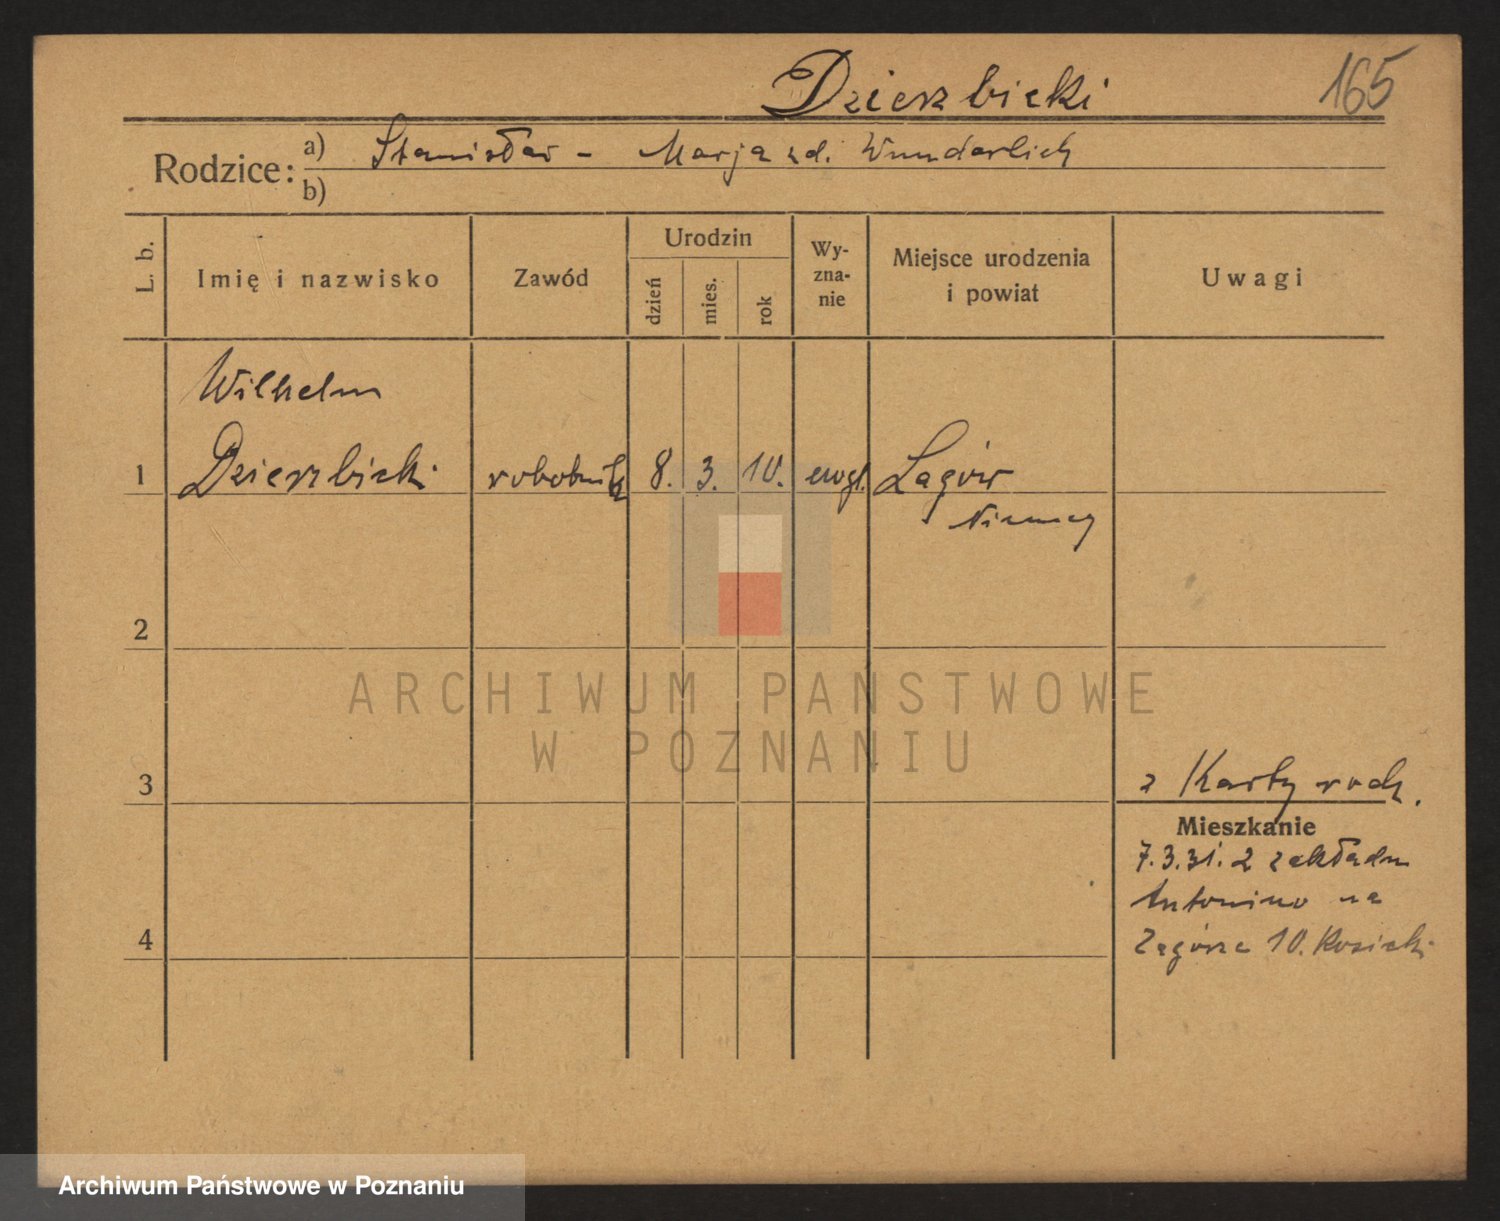 Dzierzbicki 165
Rodzice: a) Stanisław - Marja zd. Wunderlich
b)
L. b. Imię i nazwisko Zawód Urodzin dzień mies. rok Wy-zna-nie Miejsce urodzenia i powiat Uwagi
Wilhelm
1 Dzierzbicki robotnik 8. 3. 10. ewgl. Lagów
Niemcy
2
ARCHIWUM PAŃSTWOWE
W POZNANIU
3 z Karty rodz.
Mieszkanie
7.3.31. z zakładu
Antonino na
Zagórze 10. Kozicki
4
Archiwum Państwowe w Poznaniu